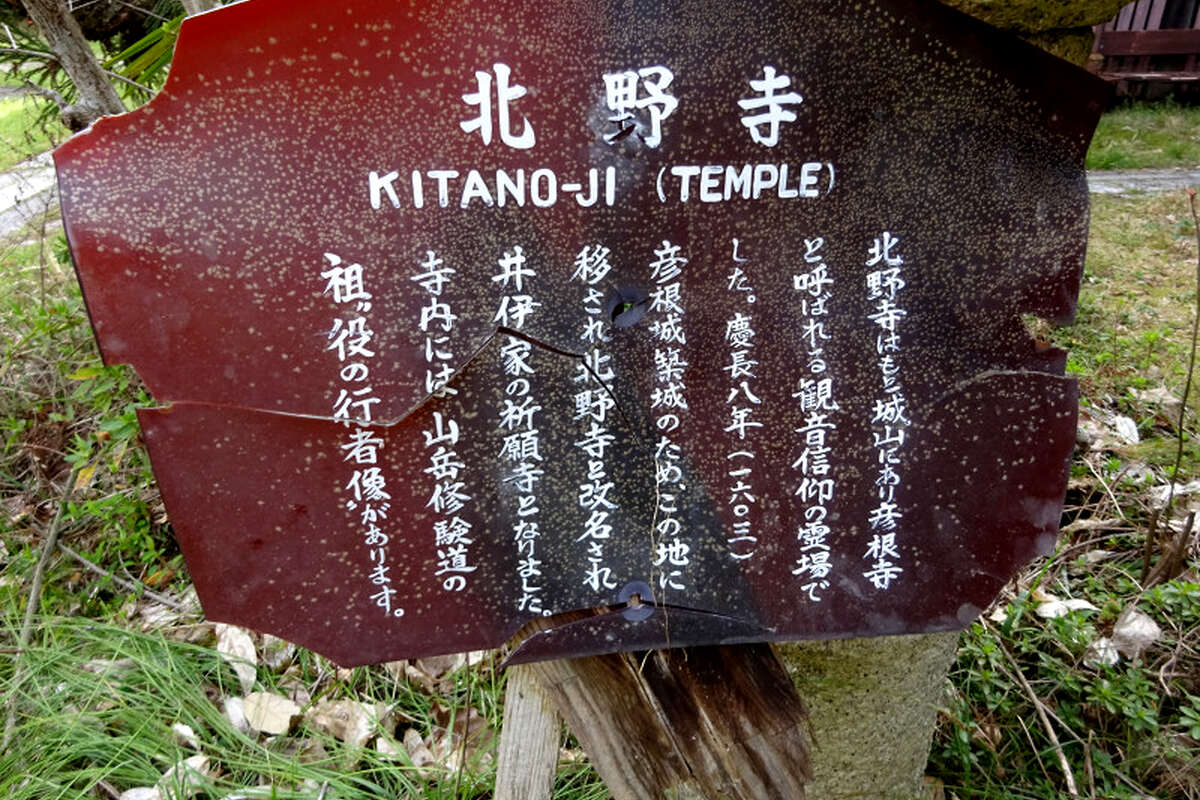 北野寺
KITANO-JI (TEMPLE)
北野寺はもと城山にあり彦根寺
と呼ばれる観音信仰の霊場で
した。慶長八年(一六〇三)
彦根城築城のため、この地に
移され北野寺と改名され
井伊家の祈願寺となりました。
寺内には山岳修験道の
祖〝役の行者像〟があります。